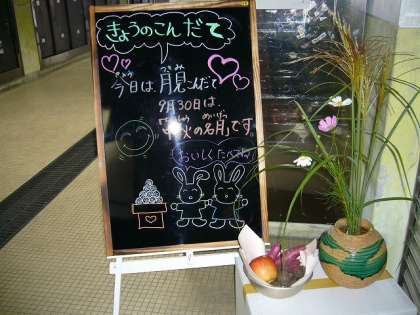 きょうのこんだて
きょう つきみ
今日は、月見こんだて
9月30日は、
ちゅうしゅう めいげつ
中秋の名月です。
おいしくたべてね